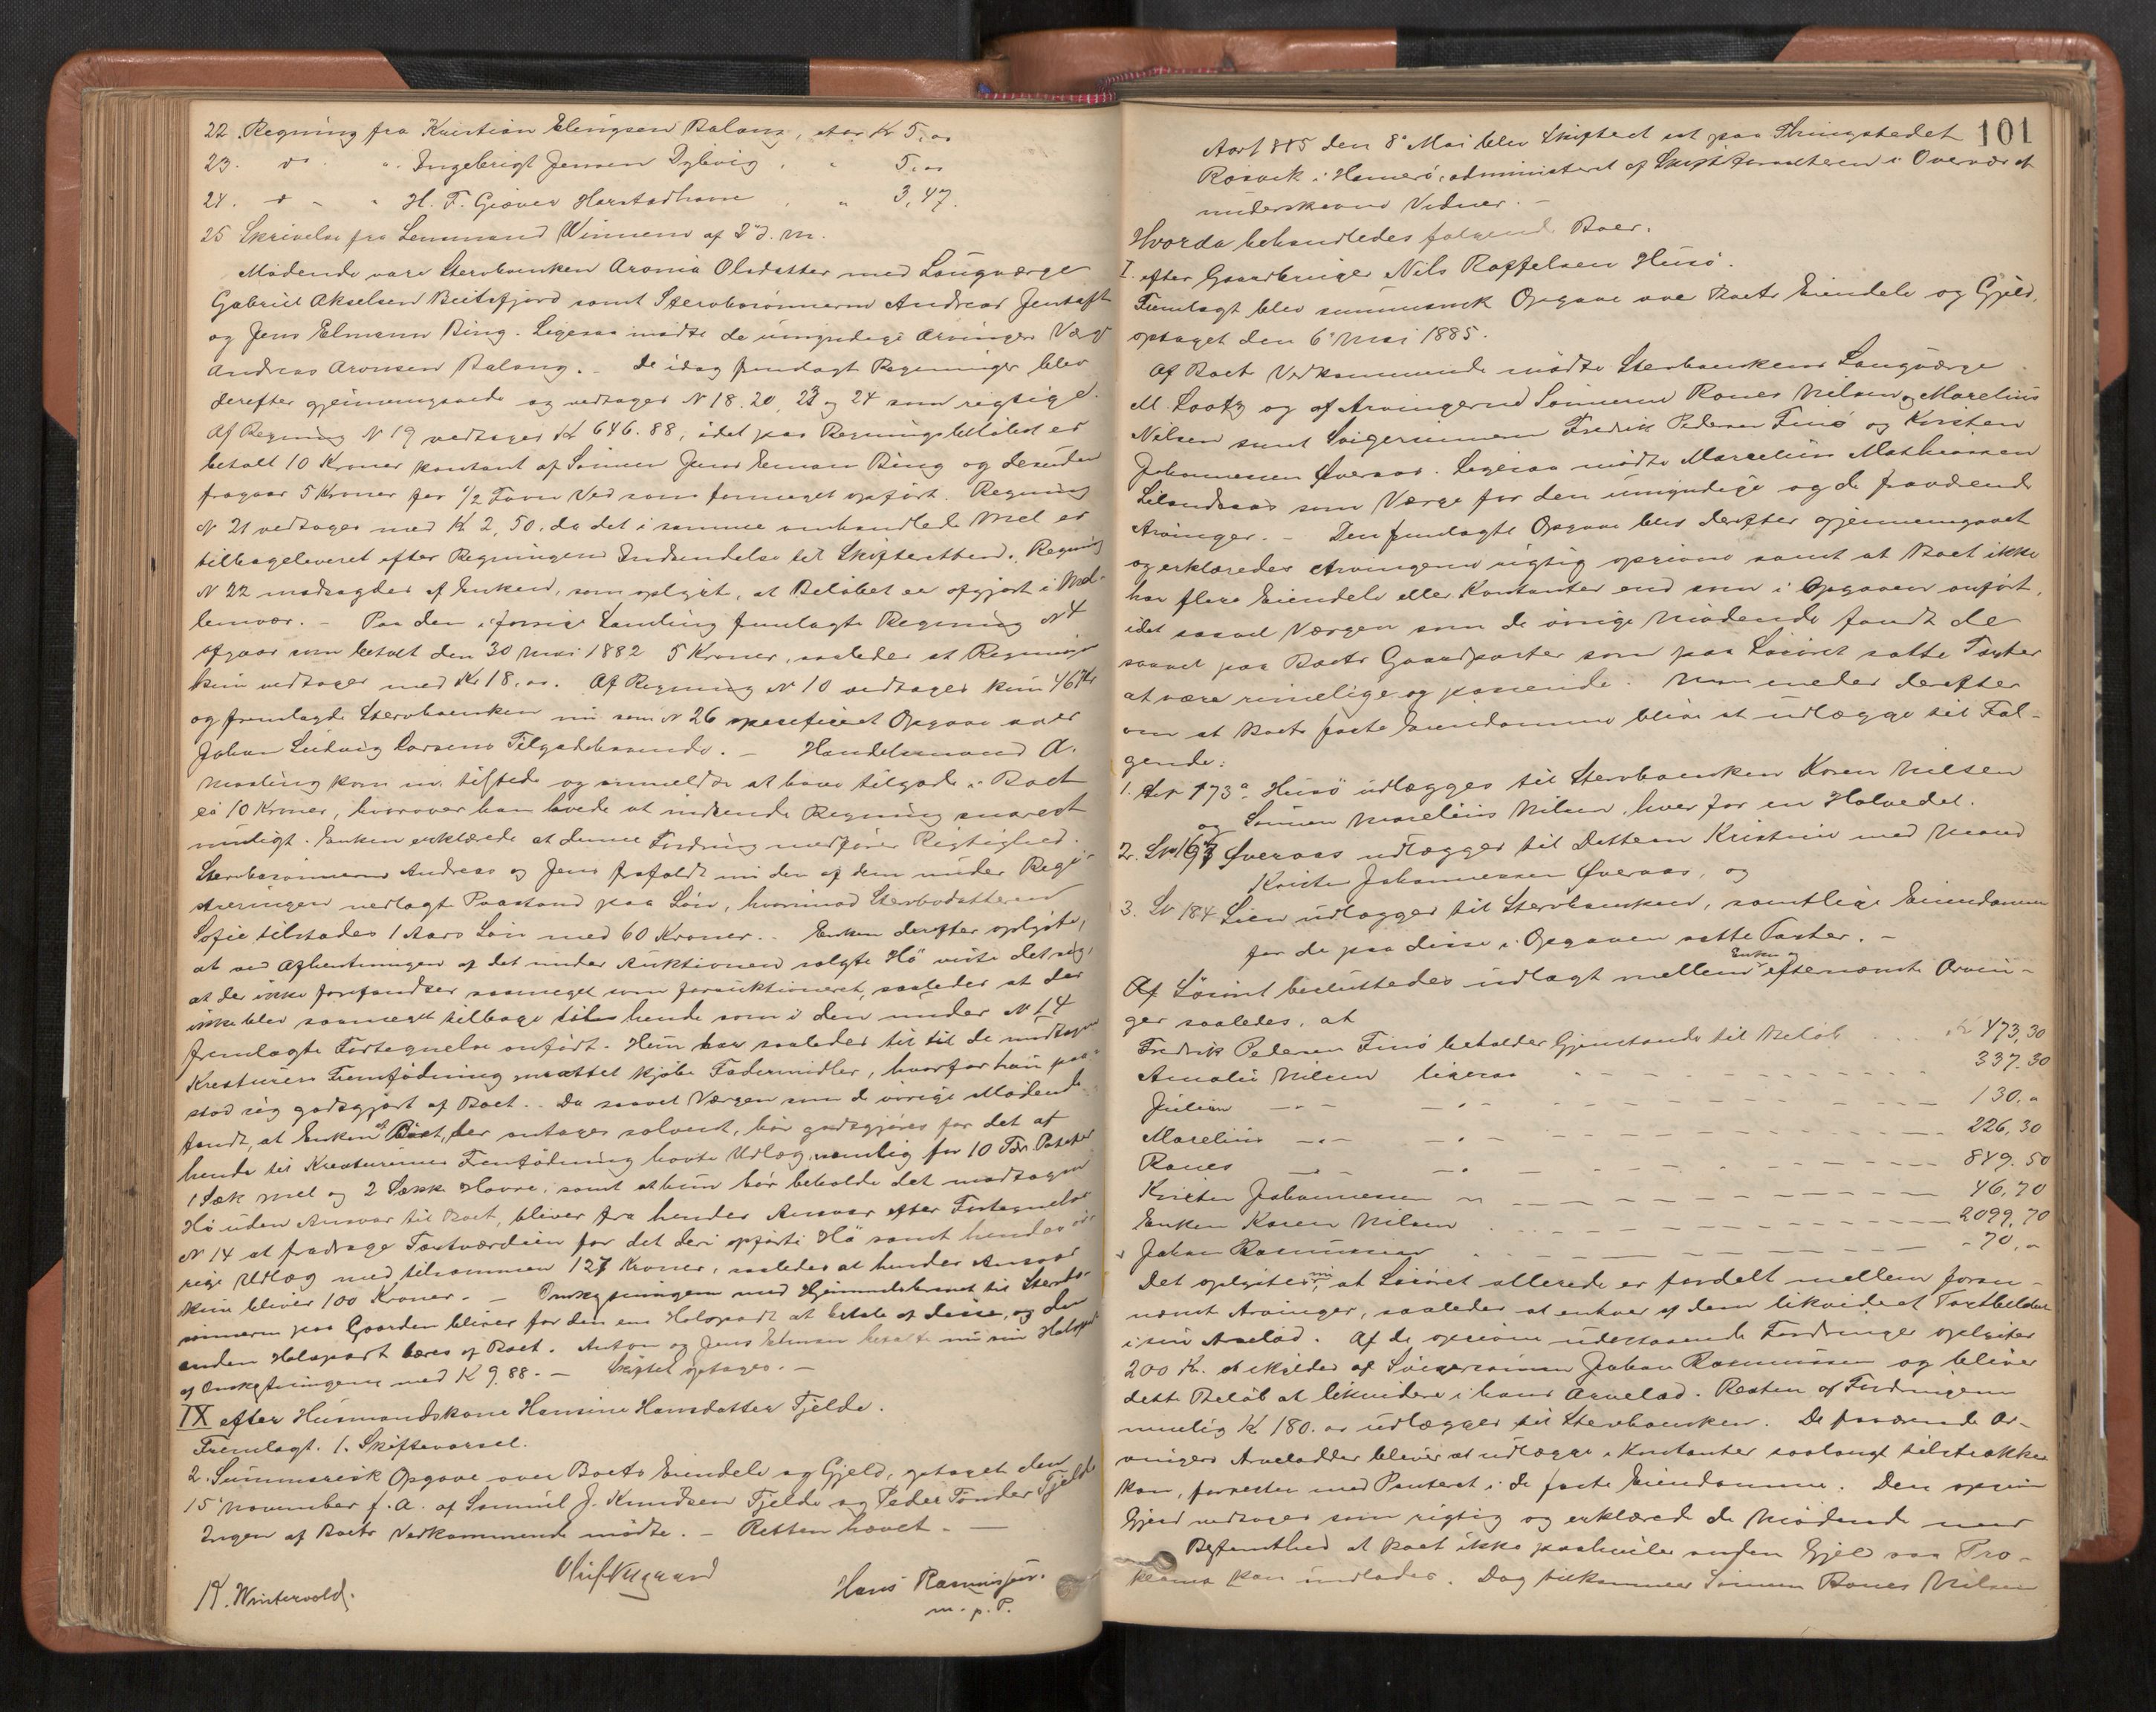 22. Regning fra Kristian Elingsen Balang, stor Kr 5.00
23. do. " Ingebrigt Jensen Dybvig, " 5.00
24. do - " H. F. Giæver Harstadhavn, " 3,47.
25 Skrivelse fra Lensmand Winnem af 2' d. M.
Mødende vare Stervboenken Aronia Olsdatter med Laugværge
Gabriel Akselsen Beitsfjord samt Stervbosønnerne Andreas Jentoft
og Jens Elmann Bing. Ligesaa mødte de umyndige Arvingers Værge
Andreas Aronsen Balang. - De idag fremlagte Regninger blev
derefter gjennemgaaede og vedtages N 18. 20, 23 og 24 som rigtige.
Af Regning N 19 vedtages Kr 646.88, idet paa Regningsbeløbet er
betalt 10 Kroner kontant af Sønnen Jens Elman Bing og desuden
fragaar 5 Kroner for 1/2 Favn Ved som formeget opført. Regning
N 21 vedtages med Kr 2,50, da det i samme omhandlede Mel er
tilbageleveret efter Regningens Indsendelse til Skifteretten. Regning
N 22 modsagdes af Enken, som oplyst, at Beløbet er opgjort i Mel-
lemvær. - Paa den i forrige Samling fremlagte Regning N 4
afgaar som betalt den 30 Mai 1882 5 Kroner, saaledes at Regningen
kun vedtages med Kr 18.00. Af Regning N 10 vedtages kun 46 Kr
og fremlagde Stervboenken nu som N 26 specificeret Opgave over
Johan Ludvig Larsens Tilgodehavende. - Handelsmand A.
Maaling kom nu tilstede og anmeldte at have tilgode i Boet
ca 10 Kroner, hvorover han lovede at indsende Regning snarest
muligt. Enken erklærede at denne Fordring medfører Rigtighed.
Stervbosønnerne Andreas og Jens frafaldt nu den af dem under Regi-
streringen nedlagte Paastand paa Løn, hvorimod Stervbodatteren
Sofie tilstades 1 Aars Løn med 60 Kroner. - Enken derefter oplyste,
at ved Afhentningen af det under Auktionen solgte Hø viste det sig,
at der ikke forefandtes saameget som forauktioneret, saaledes at der
ikke blev saameget tilbage til hende som i den under N 14
fremlagte Fortegnelse anført. Hun har saaledes til til de modtagne
Kreaturers Fremfødning maattet kjøbe Fodermidler, hvorfor hun paa-
stod sig godtgjort af Boet. - Da saavel Værgen som de øvrige Mødende
fandt, at Enken af Boet, der antages solvent, bør godtgjøres for det af
hende til Kreaturernes Fremfødning havte Udlæg, nemlig for 10 Tdr. Poteter
1 Sæk Mel og 2 Sække Havre, samt at hun bør beholde det modtagne
Hø uden Ansvar til Boet, bliver fra hendes Ansvar efter Fortegnelse
N 14 at fradrage Taxtværdien for det deri opførte Hø samt hendes øv-
rige Udlæg med tilsammen 127 Kroner, saaledes at hendes Ansvar
kun bliver 100 Kroner. - Omkostningerne med Hjemmelsbrevet til Stervbo-
sønnerne paa Gaarden bliver for den ene Halvpart at betale af disse, og den
anden Halvpart bæres af Boet. Anton og Jens Elman betalte nu sin Halvpart
af Omkostningerne med Kr 9,88. - Skiftet optages. -
IX efter Husmandskone Hansine Hansdatter Fjelde.
Fremlagt. 1. Skiftevarsel.
2. Summarisk Opgave over Boets Eiendele og Gjeld, optaget den
15' November f. A. af Samuel J. Knudsen Fjelde og Peder Tønder Fjelde
Ingen af Boets Vedkommende mødte. - Retten hævet. -
Oluf Nygaard
K. Wintervold.
Hans Rasmussen.
m. p. P.
101
Aar 1885 den 8' Mai blev Skifteret sat paa Thingstedet
Rosvik i Hamerø, administreret af Skifteforvalteren i Overvær af
underskrevne Vidner. -
Hvorda behandledes følgende Boer.
I. efter Gaardbruger Nils Roffelsen Husø.
Fremlagt blev summarisk Opgave over Boets Eiendele og Gjeld,
optaget den 6' Mai 1885.
Af Boets Vedkommende mødte Stervboenkens Laugværge
M. Lootz og af Arvingerne Sønnerne Rones Nilsen og Marelius
Nilsen samt Svigersønnerne Fredrik Pedersen Finø og Kristen
Johannessen Øveraas. Ligesaa mødte Marcelius Mathiassen
Lilandsaas som Værge for den umyndige og de fraværende
Arvinger. - Den fremlagte Opgave blev derefter gjennemgaaet
og erklæredes Arvingerne rigtig opgivne samt at Boet ikke
har flere Eiendele eller Kontanter end som i Opgaven anført,
idet saavel Værgen som de øvrige Mødende fandt de
saavel paa Boets Gaardparter som paa Løsøret satte Taxter
at være rimelige og passende. Man enedes derefter
om at Boets faste Eiendomme blive at udlægge til Føl-
gende:
1. Lnr 173a Husø udlægges til Stervboenken Karen Nilsen
og Sønnen Marelius Nilsen, hver for en Halvedel.
2. Lnr 167 Øveraas udlægges til Datteren Kristine med Mand
Kristen Johannessen Øveraas, og
3. Lnr 184 Lien udlægges til Stervboenken, samtlige Eiendomme
for de paa disse i Opgaven satte Taxter. -
Af Løsøret besluttedes udlagt mellem Enken og efternævnte Arvin-
ger saaledes, at
Fredrik Pedersen Finø beholder Gjenstande til Beløb . . . Kr 473,30
Amalie Nilsen ligesaa - - - 337.30
Julian -"- -"- - - - 130."
Marelius -"- -"- - - - 226,30
Rones -"- -"- - - - 849.50
Kristen Johannessen " - - - 46,70
Enken Karen Nilsen - - - 2099,70
Johan Rasmussen - - - 70,"
Det oplystes nu, at Løsøret allerede er fordelt mellem foran-
nævnt Arvinger, saaledes at enhver af dem likvideret Taxtbeløbet
i sin Arvelod. Af de opgivne udestaaende Fordringer oplystes
200 Kr. at skyldes af Svigersønnen Johan Rasmussen og bliver
dette Beløb at likvidere i hans Arvelod. Resten af Fordringerne
nemlig Kr 180.00 udlægges til Stervboenken. De fraværende Ar-
vingers Arvelodder bliver at udlægge i Kontanter saalangt tilstrække
kan, forresten med Panteret i de faste Eiendomme. Den opgivne
Gjeld vedtages som rigtig og erklærede de Mødende med
Bestemthed at Boet ikke paahviler anden Gjeld saa Pro-
klama kan undlades. Dog tilkommer Sønnen Rones Nilsen